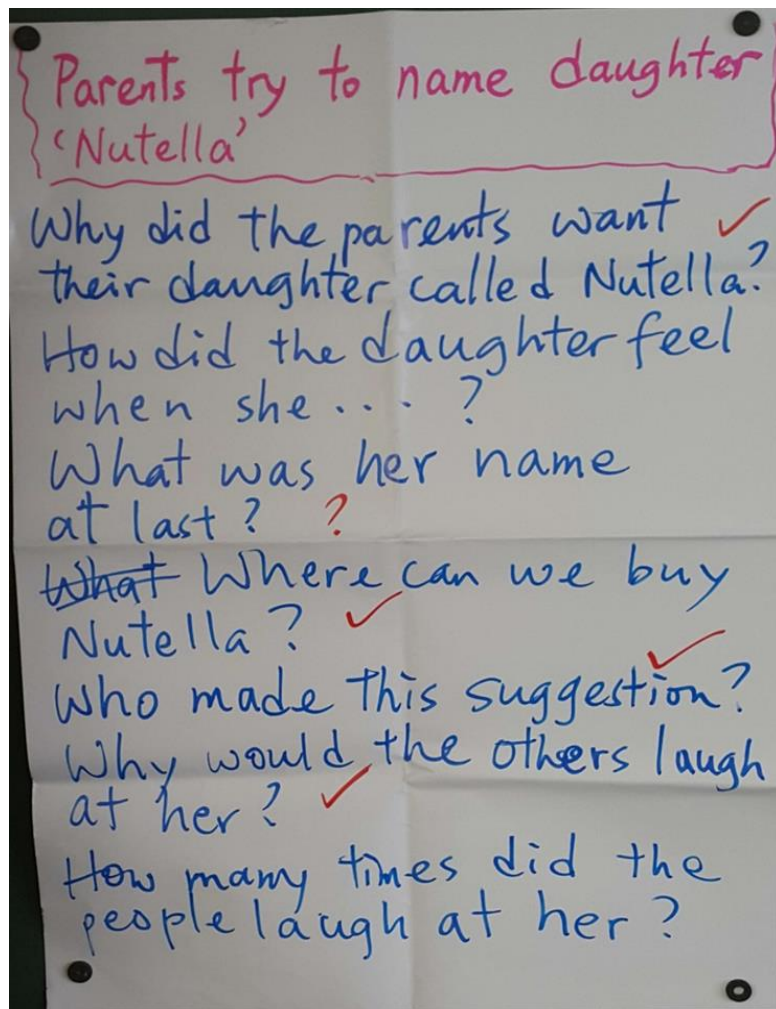 Parents try to name daughter
'Nutella'
Why did the parents want ✓
their daughter called Nutella?
How did the daughter feel
when she . . . ?
What was her name
at last? ?
What Where can we buy
Nutella? ✓
Who made this suggestion? ✓
Why would the others laugh
at her? ✓
How many times did the
people laugh at her?